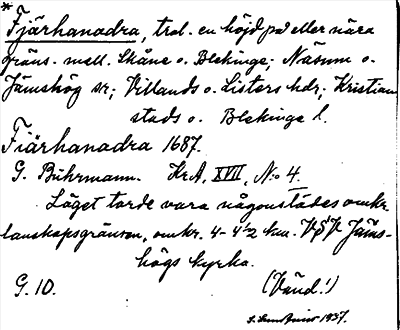 * Fjärhanadra, trol. en höjd på eller nära
gräns. mell. Skåne o. Blekinge; Näsum o.
Jämshög sr; Villands o. Listers hdr; Kristian
stads o. Blekinge l.
Fiärhanadra 1687.
G. Buhrmann. Kr.A. XVII, No 4.
Läget torde vara någonstädes omkr.
landskapsgränsen, omkr. 4-4½ km. VSV Jäms-
högs kyrka.
G. 10. (Vänd!)
1937.